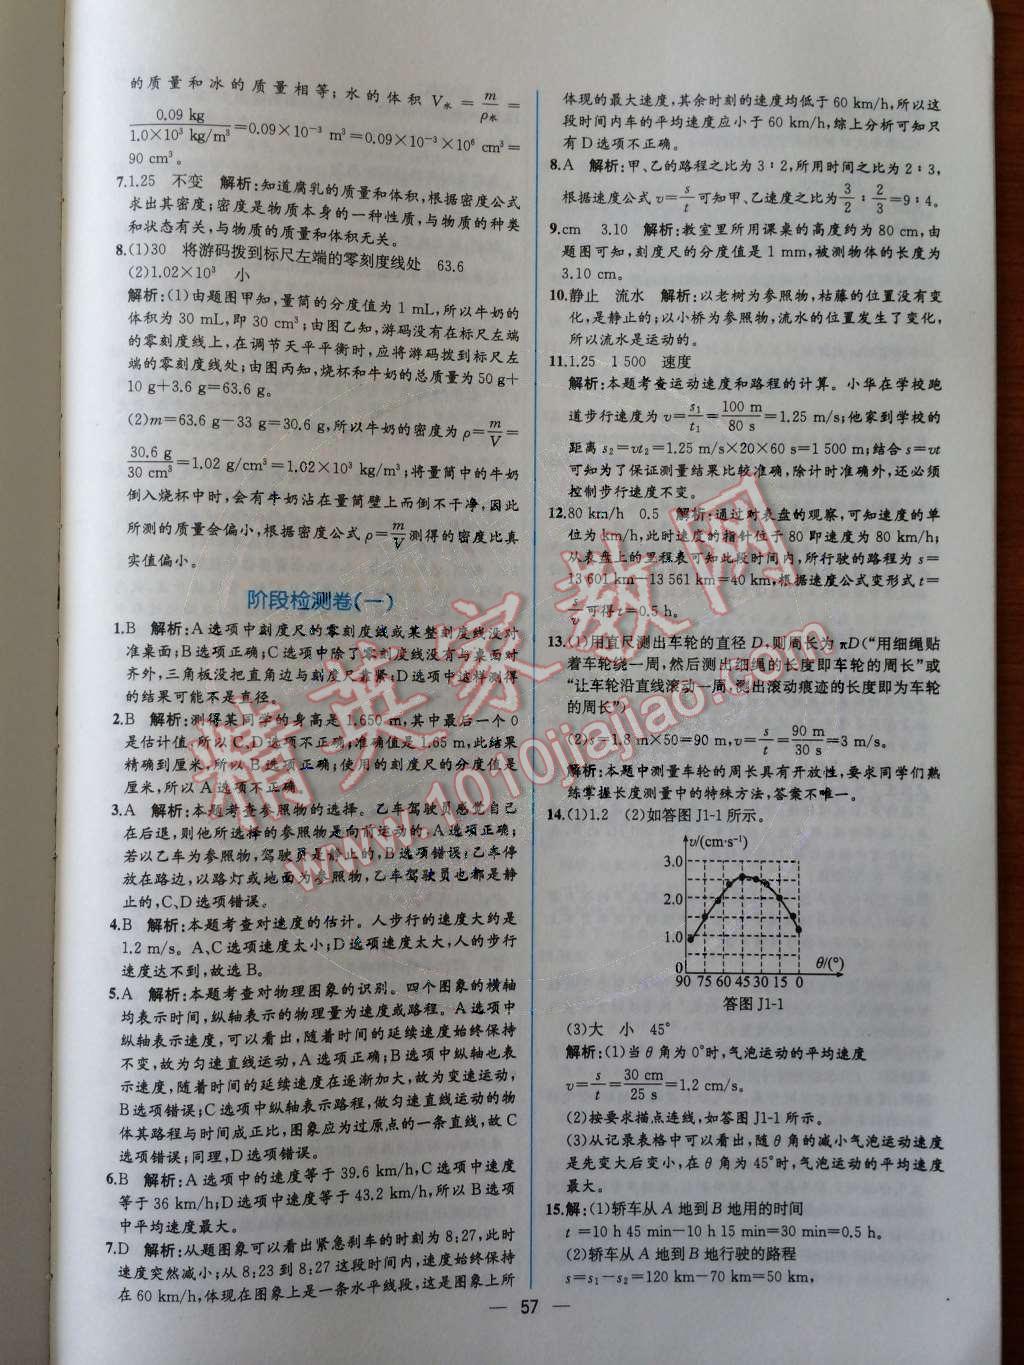 的质量和冰的质量相等;水的体积 V水=m/ρ水=
0.09 kg/1.0×10³ kg/m³=0.09×10⁻³ m³=0.09×10⁻³×10⁶ cm³=
90 cm³。
7.1.25 不变 解析:知道腐乳的质量和体积,根据密度公式
求出其密度;密度是物质本身的一种性质,与物质的种类
和状态有关,与物质的质量和体积无关。
8.(1)30 将游码拨到标尺左端的零刻度线处 63.6
(2)1.02×10³ 小
解析:(1)由题图甲知,量筒的分度值为 1 mL,所以牛奶的
体积为 30 mL,即 30 cm³;由图乙知,游码没有在标尺左端
的零刻度线上,在调节天平平衡时,应将游码拨到标尺左
端的零刻度线处;由图丙知,烧杯和牛奶的总质量为 50 g+
10 g+3.6 g=63.6 g。
(2)m=63.6 g−33 g=30.6 g,所以牛奶的密度为 ρ=m/V=
30.6 g/30 cm³=1.02 g/cm³=1.02×10³ kg/m³;将量筒中的牛奶
倒入烧杯中时,会有牛奶沾在量筒壁上而倒不干净,因此
所测的质量会偏小,根据密度公式 ρ=m/V测得的密度比真
实值偏小。
阶段检测卷(一)
1.B 解析:A选项中刻度尺的零刻度线或某整刻度线没对
准桌面;B选项正确;C选项中除了零刻度线没有与桌面对
齐外,三角板没把直角边与刻度尺靠紧;D选项中这样测得
的结果可能不是直径。
2.B 解析:测得某同学的身高是 1.650 m,其中最后一个 0
是估计值,所以 C、D选项不正确;准确值是 1.65 m,此结果
精确到厘米,所以 B选项正确;使用的刻度尺的分度值是
厘米,所以 A选项不正确。
3.A 解析:本题考查参照物的选择。乙车驾驶员感觉自己
在后退,则他所选择的参照物是向前运动的,A选项正确;
若以乙车为参照物,驾驶员是静止的,B选项错误;乙车停
放在路边,以路灯或地面为参照物,乙车驾驶员也都是静
止的,C、D选项错误。
4.B 解析:本题考查对速度的估计。人步行的速度大约是
1.2 m/s。A、C选项速度太小;D选项速度太大,人的步行
速度达不到,故选B。
5.A 解析:本题考查对物理图象的识别。四个图象的横轴
均表示时间,纵轴表示的物理量为速度或路程。A选项中
纵轴表示速度,可以看出,随着时间的延续速度始终保持
不变,故为匀速直线运动,A选项正确;B选项中纵轴也表
示速度,随着时间的延续速度在逐渐加大,故为变速运动,
B选项错误;C选项中纵轴表示路程,做匀速直线运动的物
体其路程与时间成正比,图象应为过原点的一条直线,故C
选项错误;同理,D选项错误。
6.B 解析:A选项中的速度等于 39.6 km/h,C选项中速度
等于 36 km/h;D选项中速度等于 43.2 km/h,所以 B选项
中平均速度最大。
7.D 解析:从题图象可以看出紧急刹车的时刻为 8:27,此时
速度突然减小;从 8:23 到 8:27 这段时间内,速度始终保持
在 60 km/h,体现在图象上是一条水平线段,这是图象上所
体现的最大速度,其余时刻的速度均低于 60 km/h,所以这
段时间内车的平均速度应小于 60 km/h,综上分析可知只
有 D选项不正确。
8.A 解析:甲、乙的路程之比为 3∶2,所用时间之比为 2∶3,
根据速度公式 v=s/t可知甲、乙速度之比为3/2∶2/3=9∶4。
9.cm 3.10 解析:教室里所用课桌的高度约为 80 cm,由
题图可知,刻度尺的分度值是 1 mm,被测物体的长度为
3.10 cm。
10.静止 流水 解析:以老树为参照物,枯藤的位置没有变
化,是静止的;以小桥为参照物,流水的位置发生了变化,
所以流水是运动的。
11.1.25 1 500 速度
解析:本题考查运动速度和路程的计算。小华在学校跑
道步行速度为 v=s₁/t₁=100 m/80 s=1.25 m/s;他家到学校的
距离 s₂=vt₂=1.25 m/s×20×60 s=1 500 m;结合 s=vt
可知为了保证测量结果比较准确,除计时准确外,还必须
控制步行速度不变。
12.80 km/h 0.5 解析:通过对表盘的观察,可知速度的单
位为 km/h,此时速度的指针位于 80 即速度为 80 km/h;
从表盘上的里程表可知此段时间内,所行驶的路程为 s=
13 601 km−13 561 km=40 km,根据速度公式变形式 t=
s/v可得 t=0.5 h。
13.(1)用直尺测出车轮的直径 D,则周长为 πD(“用细绳贴
着车轮绕一周,然后测出细绳的长度即车轮的周长”或
“让车轮沿直线滚动一周,测出滚动痕迹的长度即为车轮
的周长”)
(2)s=1.8 m×50=90 m,v=s/t=90 m/30 s=3 m/s。
解析:本题中测量车轮的周长具有开放性,要求同学们熟
练掌握长度测量中的特殊方法,答案不唯一。
14.(1)1.2 (2)如答图 J1-1 所示。
v/(cm·s⁻¹)
3.0
2.0
1.0
0
θ/(°)
90 75 60 45 30 15 0
答图 J1-1
(3)大 小 45°
解析:(1)当 θ 角为 0°时,气泡运动的平均速度
v=s/t=30 cm/25 s=1.2 cm/s。
(2)按要求描点连线,如答图 J1-1 所示。
(3)从记录表格中可以看出,随 θ 角的减小气泡运动速度
是先变大后变小,在 θ 角为 45°时,气泡运动的平均速度
最大。
15.解:(1)轿车从 A 地到 B 地用的时间
t=10 h 45 min−10 h 15 min=30 min=0.5 h。
(2)轿车从 A 地到 B 地行驶的路程
s=s₁−s₂=120 km−70 km=50 km,
— 57 —
精英家教网
www.1010jiajiao.com